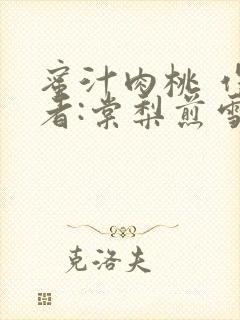 蜜汁肉桃 作
者:棠梨煎雪
克洛夫